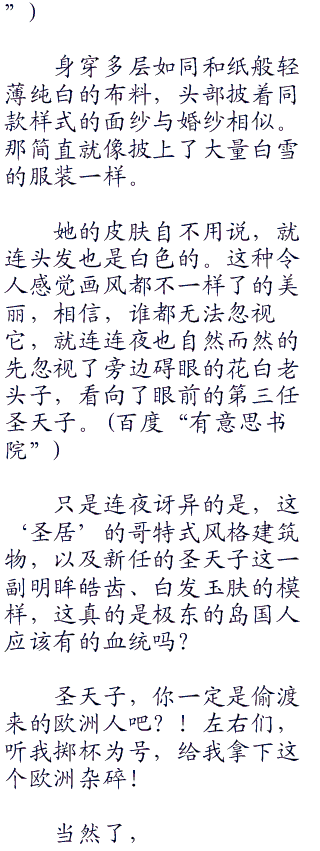 ”)
身穿多层如同和纸般轻
薄纯白的布料，头部披着同
款样式的面纱与婚纱相似。
那简直就像披上了大量白雪
的服装一样。
她的皮肤自不用说，就
连头发也是白色的。这种令
人感觉画风都不一样了的美
丽，相信，谁都无法忽视
它，就连连夜也自然而然的
先忽视了旁边碍眼的花白老
头子，看向了眼前的第三任
圣天子。(百度“有意思书
院”)
只是连夜讶异的是，这
‘圣居’的哥特式风格建筑
物，以及新任的圣天子这一
副明眸皓齿、白发玉肤的模
样，这真的是极东的岛国人
应该有的血统吗？
圣天子，你一定是偷渡
来的欧洲人吧？！左右们，
听我掷杯为号，给我拿下这
个欧洲杂碎！
当然了，